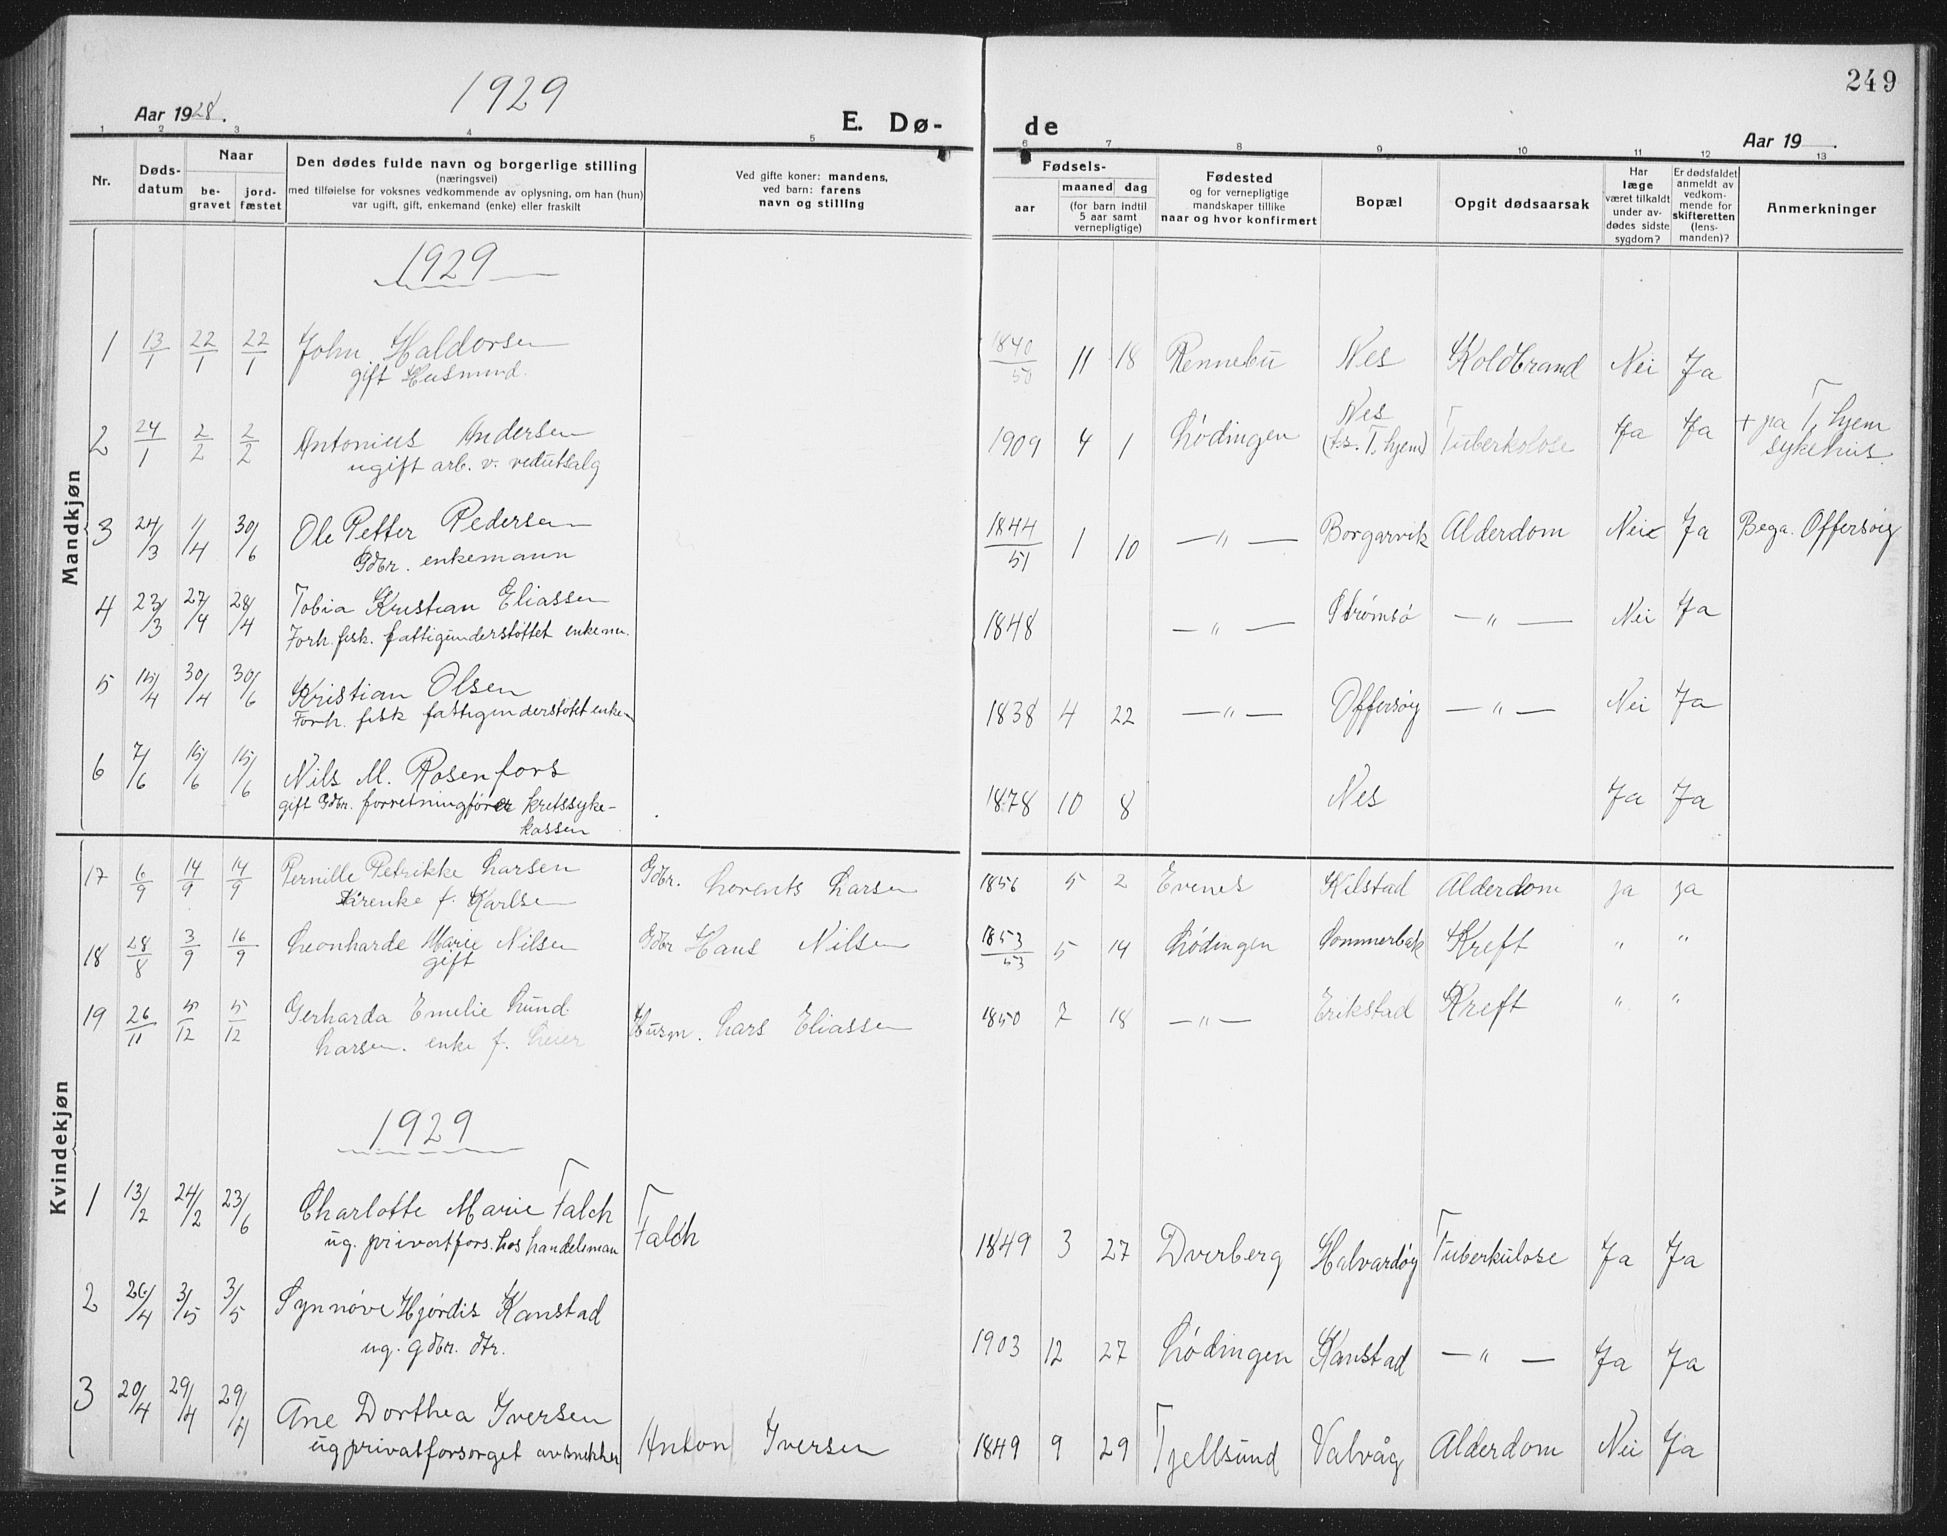 249
1929
Aar 1928.
E. Dø-
de
Aar 19 .
1 2 3 4 5 6 7 8 9 10 11 12 13
Nr.
Døds-
datum
Naar
be-
gravet
jord-
fæstet
Den dødes fulde navn og borgerlige stilling
(næringsvei)
med tilføielse for voksnes vedkommende av oplysning, om han (hun)
var ugift, gift, enkemand (enke) eller fraskilt
Ved gifte koner: mandens,
ved barn: farens
navn og stilling
Fødsels-
aar
maaned dag
(for barn indtil
5 aar samt
vernepligtige)
Fødested
og for vernepligtige
mandskaper tillike
naar og hvor konfirmert
Bopæl
Opgit dødsaarsak
Har
læge
været tilkaldt
under av-
dødes sidste
sygdom?
Er dødsfaldet
anmeldt av
vedkom-
mende for
skifteretten
(lens-
manden)?
Anmerkninger
Mandkjøn
1929
1 13/1 22/1 22/1 John Haldorsen 1840/50 11 18 Rennebu Nes Koldbrand Nei Ja
gift Husmand.
2 24/1 2/2 2/2 Antonius Andersen 1909 4 1 Lødingen Nes (t.s. T. hjem) Tuberkolose Ja Ja + på T. hjem
ugift arb. v. vedutsalg sykehus.
3 24/3 11/4 30/6 Ole Petter Pedersen 1844/51 1 10 —"— Borgarvik Alderdom Nei Ja Bega. Offersøy
Gdbr. enkemann
4 23/3 27/4 28/4 Tobia Kristian Eliassen 1848 —"— Strømsø —"— Nei Ja
Forh. fisk. fattigunderstøttet enkem.
5 15/4 30/4 30/6 Kristian Olsen 1838 4 22 —"— Offersøy —"— Nei Ja
Forh. fisk fattigunderstøtet enkem
6 7/6 15/6 15/6 Nils M. Rosenfors 1878 10 8 Nes Ja Ja
gift Gdbr. forretningfører kretssyke-
kassen
Kvindekjøn
17 6/9 14/9 14/9 Pernille Petrikke Larsen Gdbr. Lorents Larsen 1856 5 2 Evenes Kilstad Alderdom ja ja
enke f. Karlsen
18 28/8 3/9 16/9 Leonharde Marie Nilsen Gdbr Hans Nilsen 1853/53 5 14 Lødingen Sommerbak Kreft " "
gift
19 26/11 5/12 5/12 Gerharda Emelie Lund Husm. Lars Eliassen 1850 7 18 —"— Erikstad Kreft " "
Larsen. enke f. Leier
1929
1 13/2 24/2 23/6 Charlotte Marie Falch Falch 1849 3 27 Dverberg Halvardøy Tuberkulose Ja Ja
ug. privatfors. hos handelsman
2 26/4 3/5 3/5 Synnøve Hjørdis Kanstad 1903 12 27 Lødingen Kanstad —"— Ja Ja
ug. gdbr. dtr.
3 20/4 29/4 29/4 Ane Dorthea Iversen Anton Iversen 1849 9 29 Tjellsund Valvåg Alderdom Nei Ja
ug privatforsorget av snekker